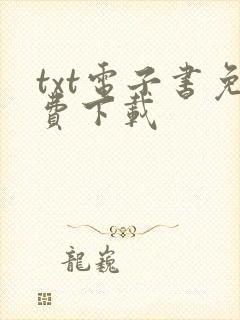 txt電子書免
費下載
龍巍